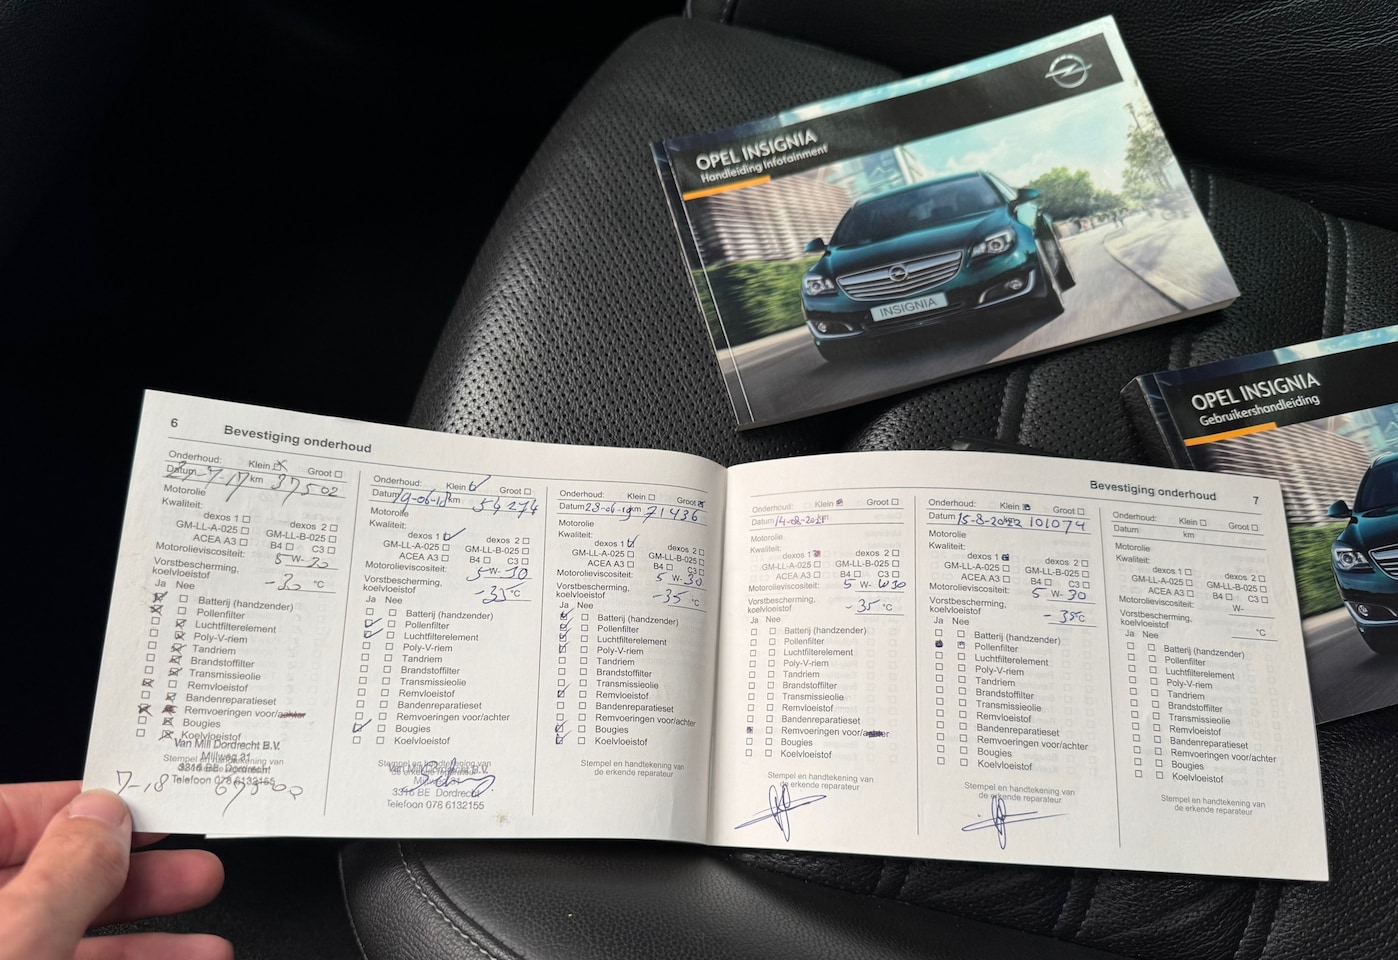 OPEL INSIGNIA
Handleiding Infotainment
INSIGNIA
OPEL INSIGNIA
Gebruikershandleiding
6
Bevestiging onderhoud
Onderhoud: Klein Groot
Datum km 37502
Motorolie
Kwaliteit:
dexos 1 dexos 2
GM-LL-A-025 GM-LL-B-025
ACEA A3 B4 C3
Motorolieviscositeit: 5 W- 30
Vorstbescherming,
koelvloeistof -30 °C
Ja Nee
Batterij (handzender)
Pollenfilter
Luchtfilterelement
Poly-V-riem
Tandriem
Brandstoffilter
Transmissieolie
Remvloeistof
Bandenreparatieset
Remvoeringen voor/achter
Bougies
Koelvloeistof
Stempel en handtekening van
Van Mill Dordrecht B.V.
Mijlweg 21
3316 BE Dordrecht
Telefoon 078 6132155
7-18
Onderhoud: Klein Groot
Datum 19-06-18 km 54274
Motorolie
Kwaliteit:
dexos 1 dexos 2
GM-LL-A-025 GM-LL-B-025
ACEA A3 B4 C3
Motorolieviscositeit: 5 W- 30
Vorstbescherming,
koelvloeistof °C
Ja Nee
Batterij (handzender)
Pollenfilter
Luchtfilterelement
Poly-V-riem
Tandriem
Brandstoffilter
Transmissieolie
Remvloeistof
Bandenreparatieset
Remvoeringen voor/achter
Bougies
Koelvloeistof
Stempel en handtekening van
Van Mill Dordrecht B.V.
3316 BE Dordrecht
Telefoon 078 6132155
Onderhoud: Klein Groot
Datum 28-06-19 km 71436
Motorolie
Kwaliteit:
dexos 1 dexos 2
GM-LL-A-025 GM-LL-B-025
ACEA A3 B4 C3
Motorolieviscositeit: 5 W- 30
Vorstbescherming,
koelvloeistof -35 °C
Ja Nee
Batterij (handzender)
Pollenfilter
Luchtfilterelement
Poly-V-riem
Tandriem
Brandstoffilter
Transmissieolie
Remvloeistof
Bandenreparatieset
Remvoeringen voor/achter
Bougies
Koelvloeistof
Stempel en handtekening van
de erkende reparateur
Bevestiging onderhoud
7
Onderhoud: Klein Groot
Datum 14-08-2021
Motorolie
Kwaliteit:
dexos 1 dexos 2
GM-LL-A-025 GM-LL-B-025
ACEA A3 B4 C3
Motorolieviscositeit: 5 W- W30
Vorstbescherming,
koelvloeistof -35 °C
Ja Nee
Batterij (handzender)
Pollenfilter
Luchtfilterelement
Poly-V-riem
Tandriem
Brandstoffilter
Transmissieolie
Remvloeistof
Bandenreparatieset
Remvoeringen voor/achter
Bougies
Koelvloeistof
Stempel en handtekening van
de erkende reparateur
Onderhoud: Klein Groot
Datum 15-8-2022 km 101079
Motorolie
Kwaliteit:
dexos 1 dexos 2
GM-LL-A-025 GM-LL-B-025
ACEA A3 B4 C3
Motorolieviscositeit: 5 W- 30
Vorstbescherming,
koelvloeistof -35 °C
Ja Nee
Batterij (handzender)
Pollenfilter
Luchtfilterelement
Poly-V-riem
Tandriem
Brandstoffilter
Transmissieolie
Remvloeistof
Bandenreparatieset
Remvoeringen voor/achter
Bougies
Koelvloeistof
Stempel en handtekening van
de erkende reparateur
Onderhoud: Klein Groot
Datum km
Motorolie
Kwaliteit:
dexos 1 dexos 2
GM-LL-A-025 GM-LL-B-025
ACEA A3 B4 C3
Motorolieviscositeit: W-
Vorstbescherming,
koelvloeistof °C
Ja Nee
Batterij (handzender)
Pollenfilter
Luchtfilterelement
Poly-V-riem
Tandriem
Brandstoffilter
Transmissieolie
Remvloeistof
Bandenreparatieset
Remvoeringen voor/achter
Bougies
Koelvloeistof
Stempel en handtekening van
de erkende reparateur